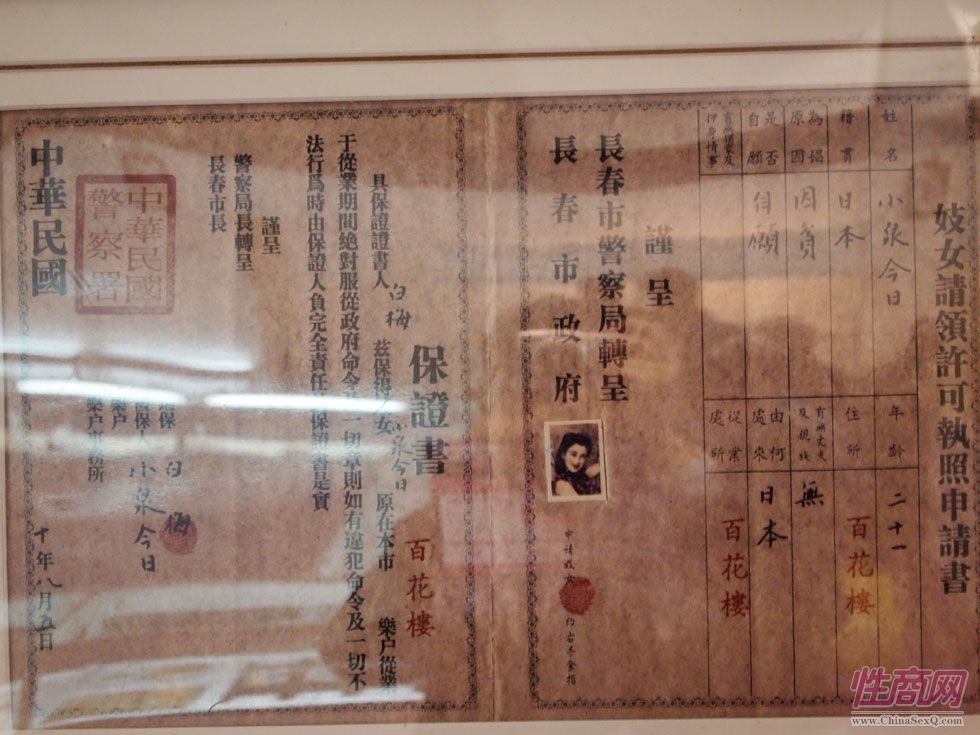 妓女請領許可執照申請書
姓名 小泉今日 年齡 二十一
籍貫 日本 住所 百花樓
為娼原因 因貧 有無丈夫及親族 無
是否自願 自願 由何處來 日本
押身情事 從業處所 百花樓
謹呈
長春市警察局轉呈
長春市政府
申請妓女
保證書
百花樓
具保證證書人 白梅 茲保得妓女 小泉今日 原在本市 樂户從業
于從業期間絕對服從政府命令及一切章則如有違犯命令及一切不
法行爲時由保證人負完全責任 保證書是實
謹呈
警察局長轉呈
長春市長
白梅
保人 小泉今日
樂户
樂户事務所
中華民國 十年八月五日
中華民國
警察署
性商网
www.ChinaSexQ.com